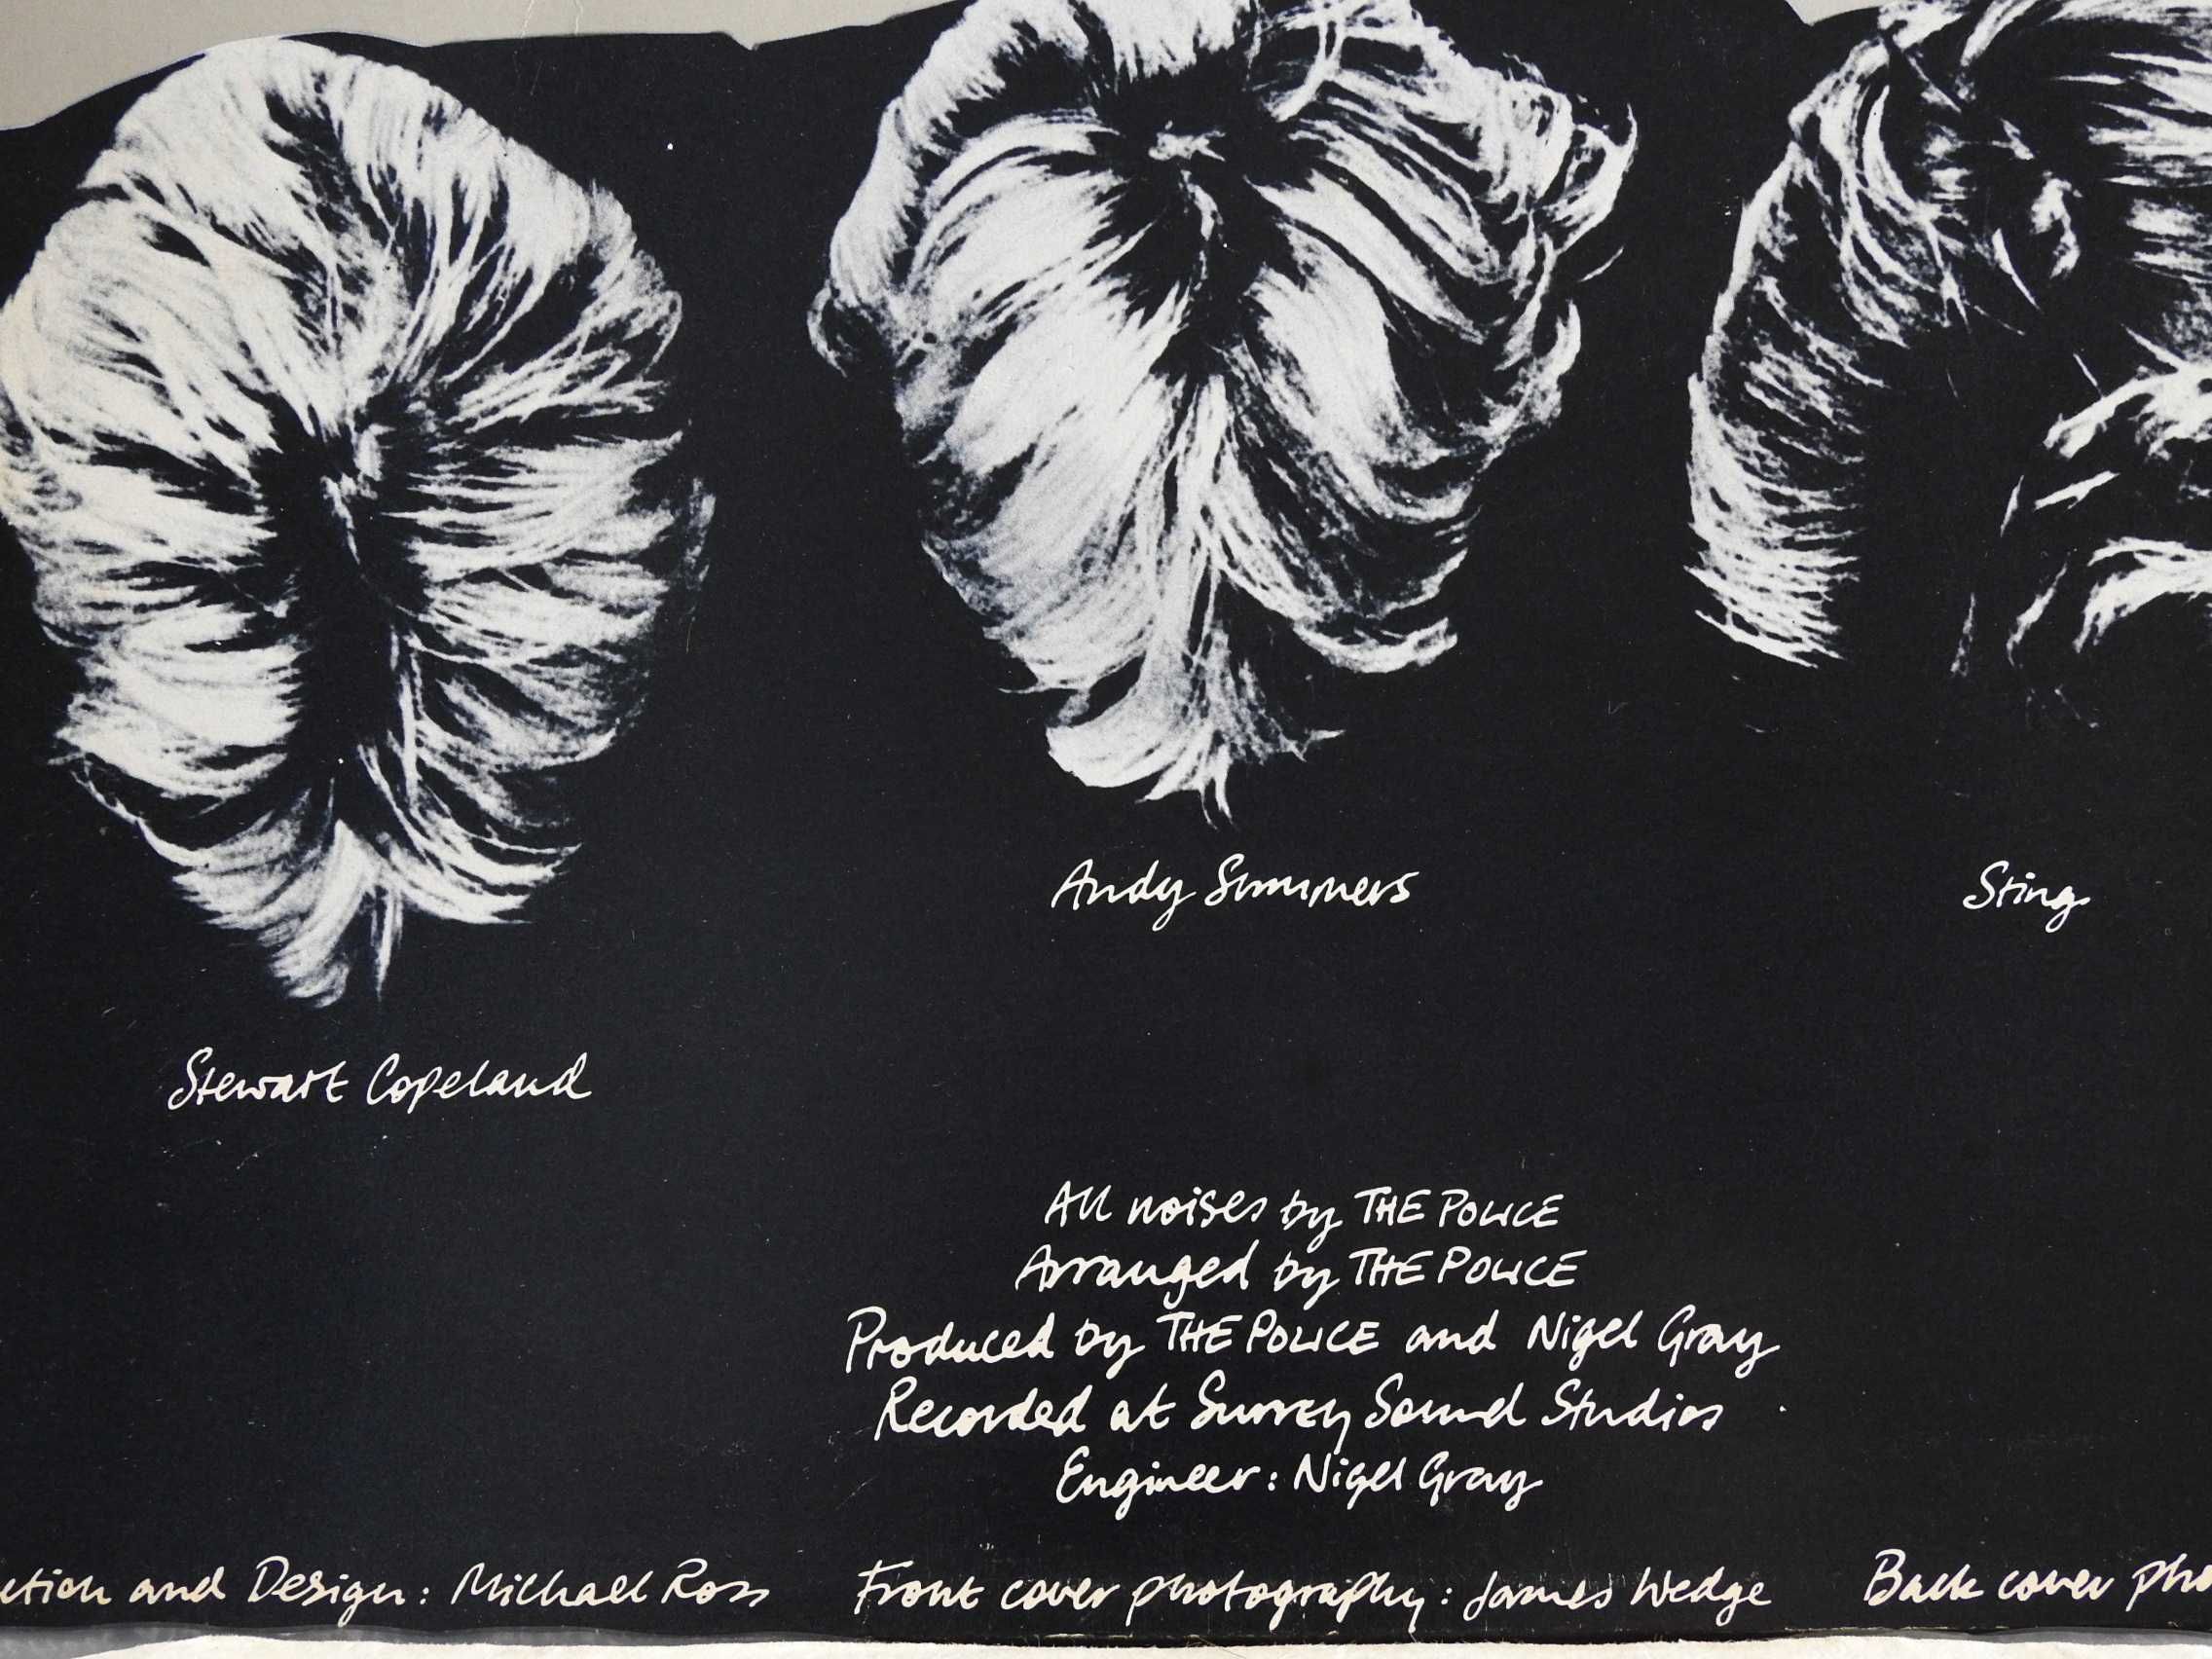 Andy Summers
Sting
Stewart Copeland
All noises by THE POLICE
Arranged by THE POLICE
Produced by THE POLICE and Nigel Gray
Recorded at Surrey Sound Studios
Engineer: Nigel Gray
and Design: Michael Ross Front cover photography: James Wedge Back cover